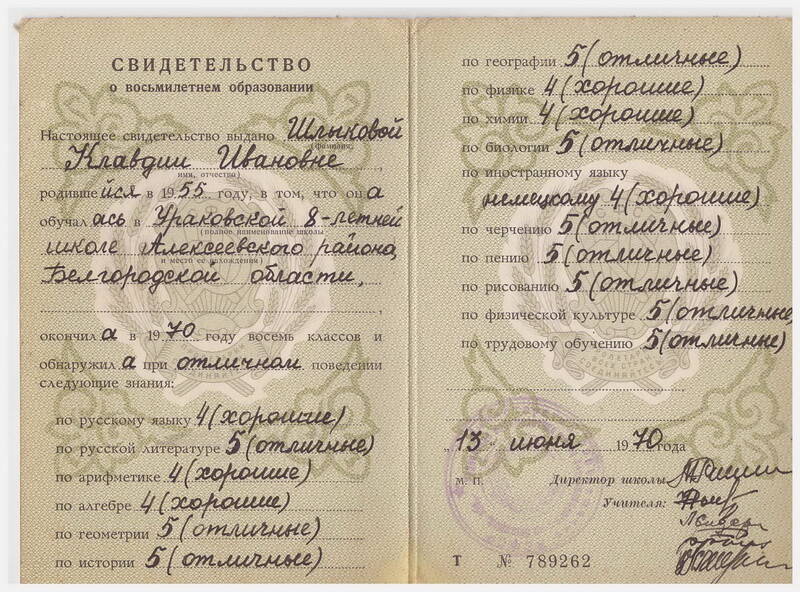 СВИДЕТЕЛЬСТВО
о восьмилетнем образовании
Настоящее свидетельство выдано Шлыковой
(фамилия,
Клавдии Ивановне
имя, отчество)
родившейся в 1955 году, в том, что она
обучалась в Ураковской 8-летней
(полное наименование школы
школе Алексеевского района,
и место ее нахождения)
Белгородской области,
окончила в 1970 году восемь классов и
обнаружила при отличном поведении
следующие знания:
по русскому языку 4 (хорошие)
по русской литературе 5 (отличные)
по арифметике 4 (хорошие)
по алгебре 4 (хорошие)
по геометрии 5 (отличные)
по истории 5 (отличные)
по географии 5 (отличные)
по физике 4 (хорошие)
по химии 4 (хорошие)
по биологии 5 (отличные)
по иностранному языку
немецкому 4 (хорошие)
по черчению 5 (отличные)
по пению 5 (отличные)
по рисованию 5 (отличные)
по физической культуре 5 (отличные)
по трудовому обучению 5 (отличные)
„13" июня 1970 года
М. П. Директор школы
Учителя:
Т № 789262